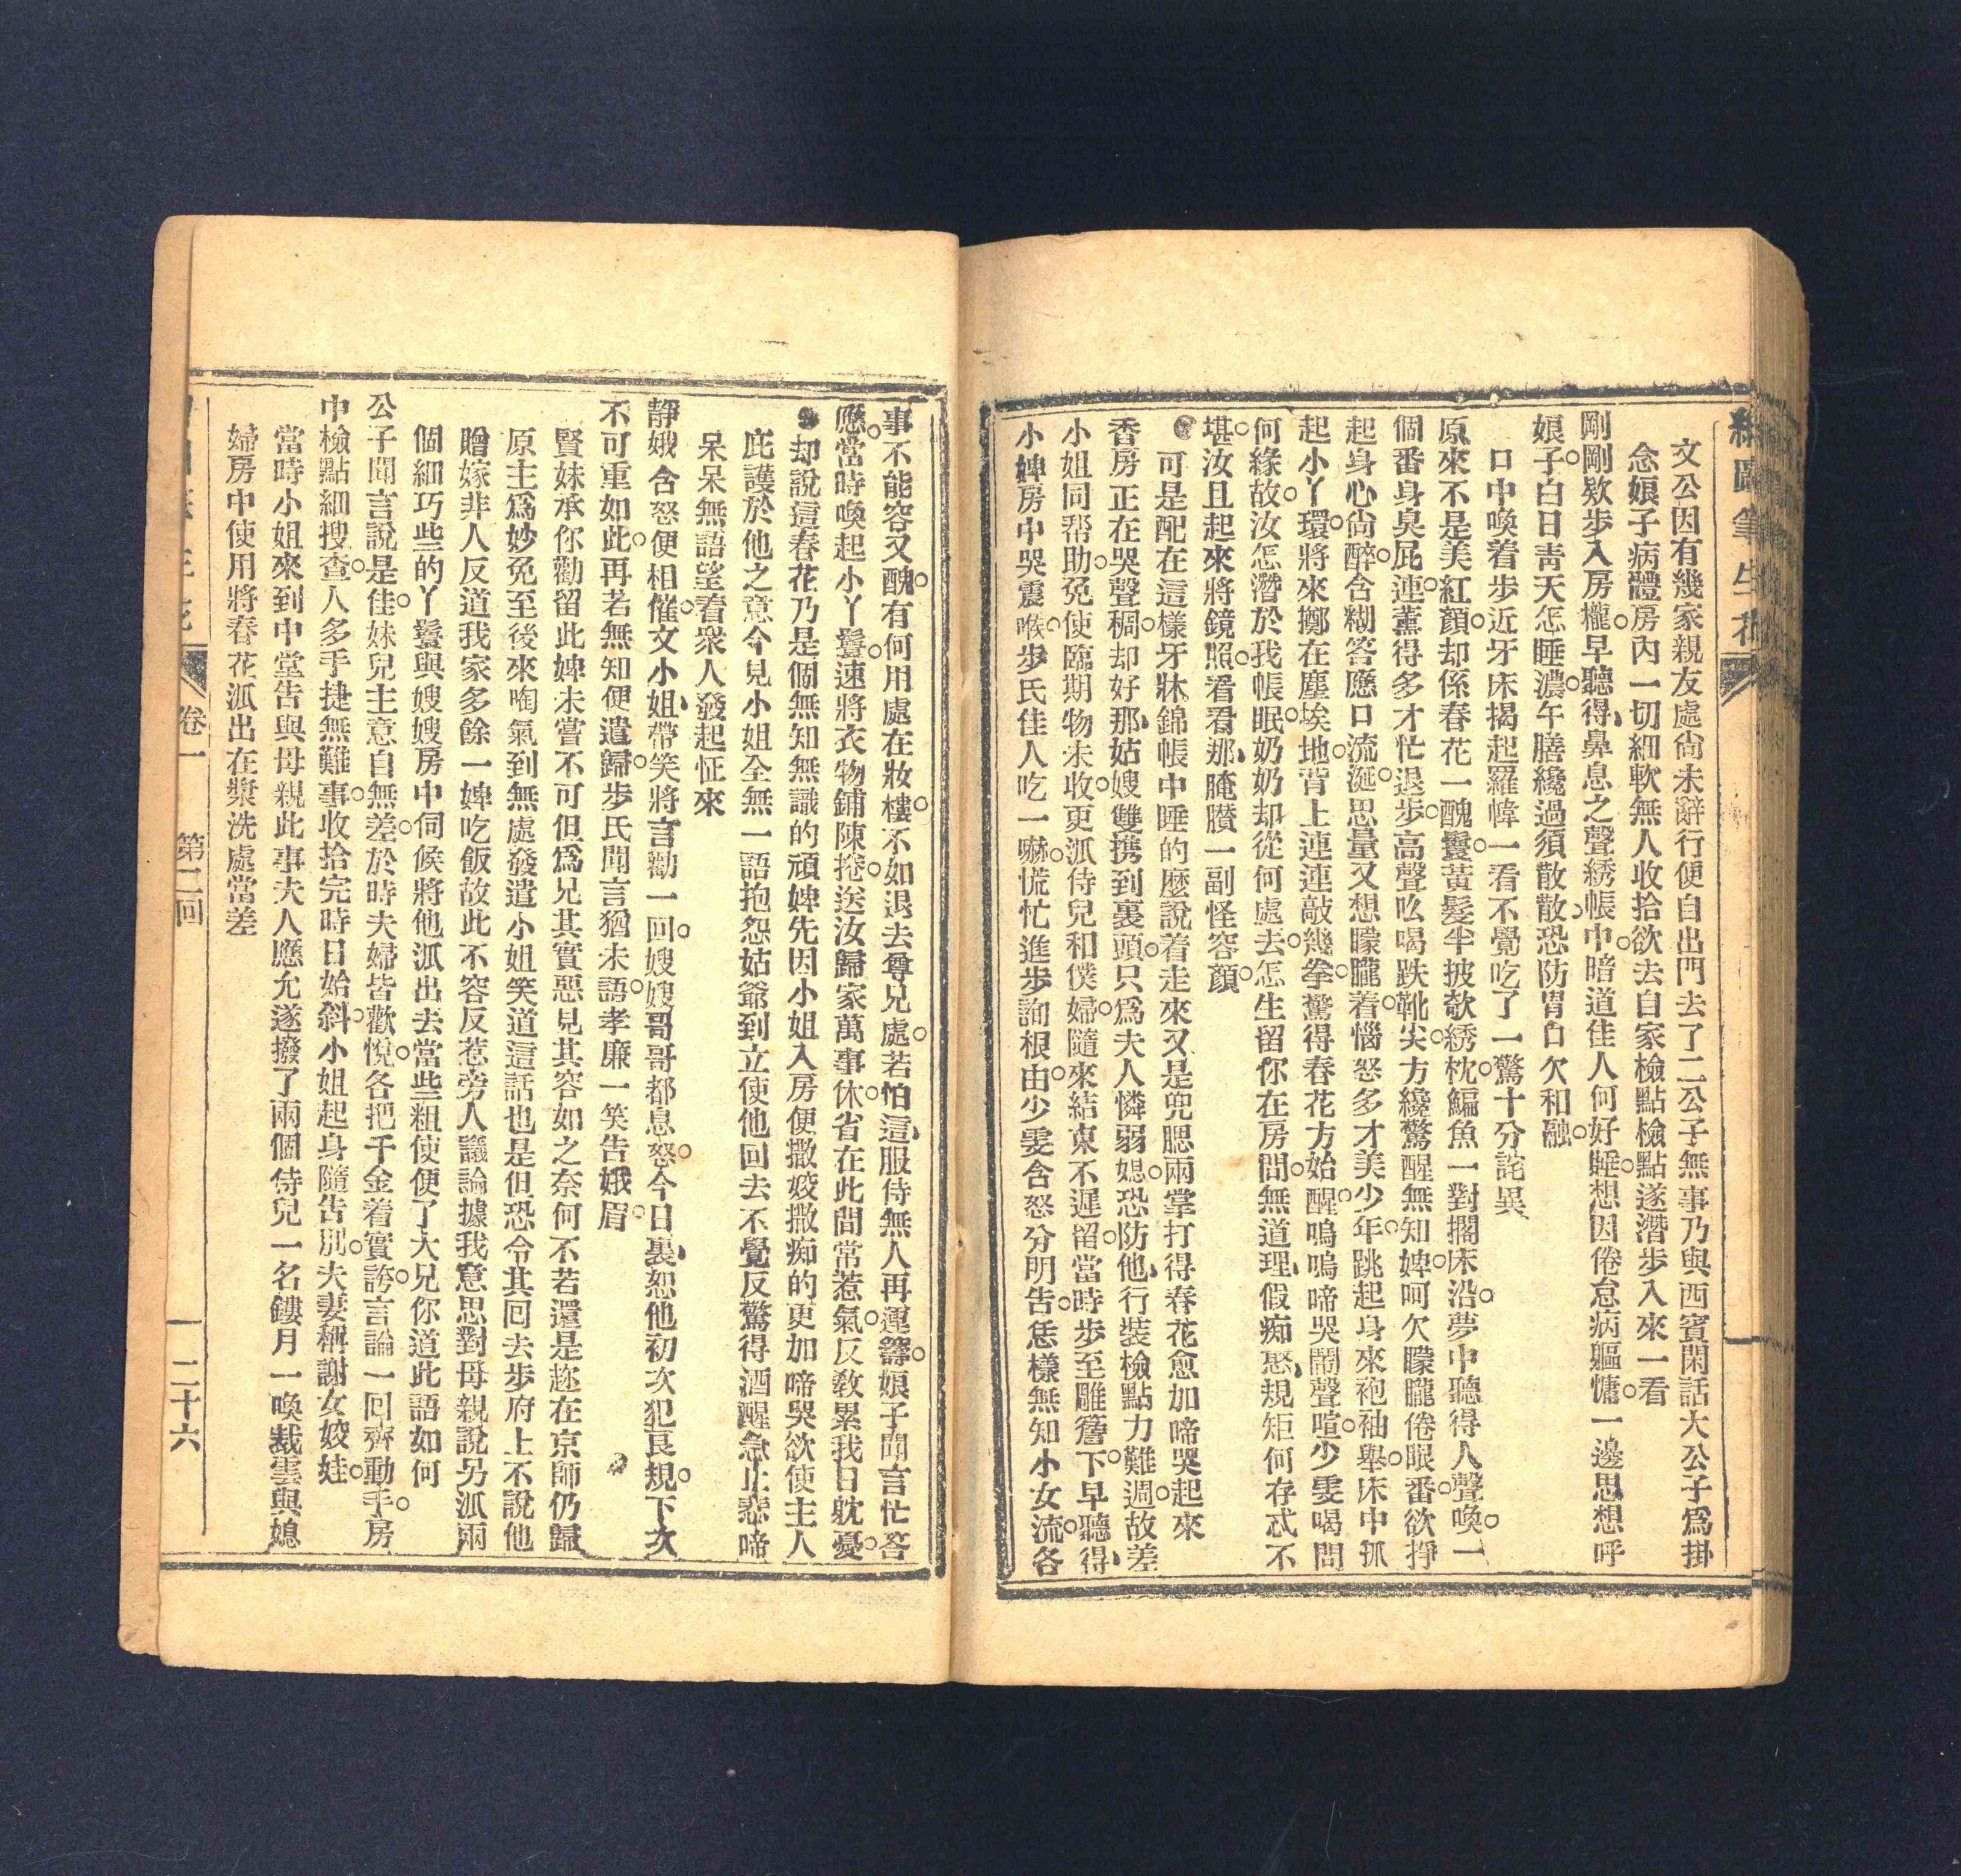 繪圖筆生花
文公因有幾家親友處尙未辭行便自出門去了二公子無事乃與西賓閑話大公子爲掛
念娘子病軆房內一切細軟無人收拾欲去自家檢點檢點遂潛步入來一看
剛剛欵步入房櫳○早聽得鼻息之聲綉帳中○暗道佳人何好睡○想因倦怠病軀慵○一邊思想呼
娘子○白日靑天怎睡濃○午膳纔過須散散恐防胃口欠和融○
口中喚着步近牙床揭起羅幃一看不覺吃了一驚十分詫異
原來不是美紅顏○却係春花一醜鬟○黃髮半披欹綉枕○鯿魚一對擱床沿○夢中聽得人聲喚○一
個番身臭屁連○薰得多才忙退步○高聲吆喝跌靴尖○方纔驚醒無知婢○呵欠朦朧倦眼番○欲掙
起身心尙醉○含糊答應口流涎○思量又想朦朧着○惱怒多才美少年○跳起身來袍袖舉○床中抓
起小丫環○將來擲在塵埃地○背上連連敲幾拳○驚得春花方始醒○嗚嗚啼哭鬧聲喧○少雯喝問
何緣故○汝怎潛於我帳眠○奶奶却從何處去○怎生留你在房間○無道理假痴憨規矩何存忒不
堪○汝且起來將鏡照○看看那腌臢一副怪容顏○
可是配在這樣牙牀錦帳中睡的麽說着走來又是兜腮兩掌打得春花愈加啼哭起來
香房正在哭聲稠○却好那姑嫂雙携到裏頭○只爲夫人憐弱媳○恐防他行裝檢點力難週○故差
小姐同帮助○免使臨期物未收○更派侍兒和僕婦○隨來結束不遲留○當時步至雕簷下○早聽得
小婢房中哭震喉○步氏佳人吃一嚇○慌忙進步詢根由○少雯含怒分明告○恁樣無知小女流○各
事不能容又醜○有何用處在妝樓○不如退去尊兄處○若怕這服侍無人再運籌○娘子聞言忙答
應○當時喚起小丫鬟○速將衣物鋪陳捲○送汝歸家萬事休○省在此間常惹氣○反敎累我日躭憂○
却說這春花乃是個無知無識的頑婢先因小姐入房便撒姣撒痴的更加啼哭欲使主人
庇護於他之意今見小姐全無一語抱怨姑爺到立使他回去不覺反驚得酒醒急止悲啼
呆呆無語望着衆人發起怔來
靜娥含怒便相催○文小姐帶笑將言勸一回○嫂嫂哥哥都息怒○今日裏恕他初次犯良規○下次
不可重如此○再若無知便遣歸○步氏聞言猶未語○孝廉一笑告娥眉○
賢妹承你勸留此婢未嘗不可但爲兄其實惡見其容如之奈何不若還是趂在京師仍歸
原主爲妙免至後來啕氣到無處發遣小姐笑道這話也是但恐令其回去步府上不說他
贈嫁非人反道我家多餘一婢吃飯故此不容反惹旁人議論據我意思對母親說另派兩
個細巧些的丫鬟與嫂嫂房中伺候將他派出去當些粗使便了大兄你道此語如何
公子聞言說是佳○妹兒主意自無差○於時夫婦皆歡悅○各把千金着實誇○言論一回齊動手○房
中檢點細搜查○人多手捷無難事○收拾完時日始斜○小姐起身隨告別○夫妻稱謝女姣娃○
當時小姐來到中堂告與母親此事夫人應允遂撥了兩個侍兒一名鏤月一喚裁雲與媳
婦房中使用將春花派出在漿洗處當差
卷一　第二回　二十六